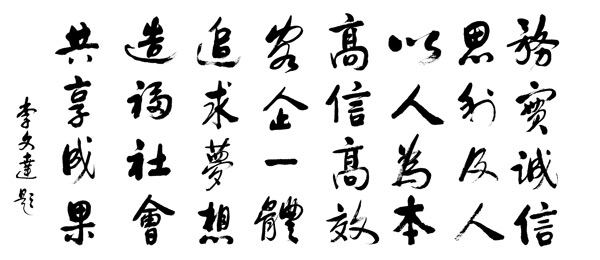 務實誠信
思利及人
以人為本
高信高效
客企一體
追求夢想
造福社會
共享成果
李文達題